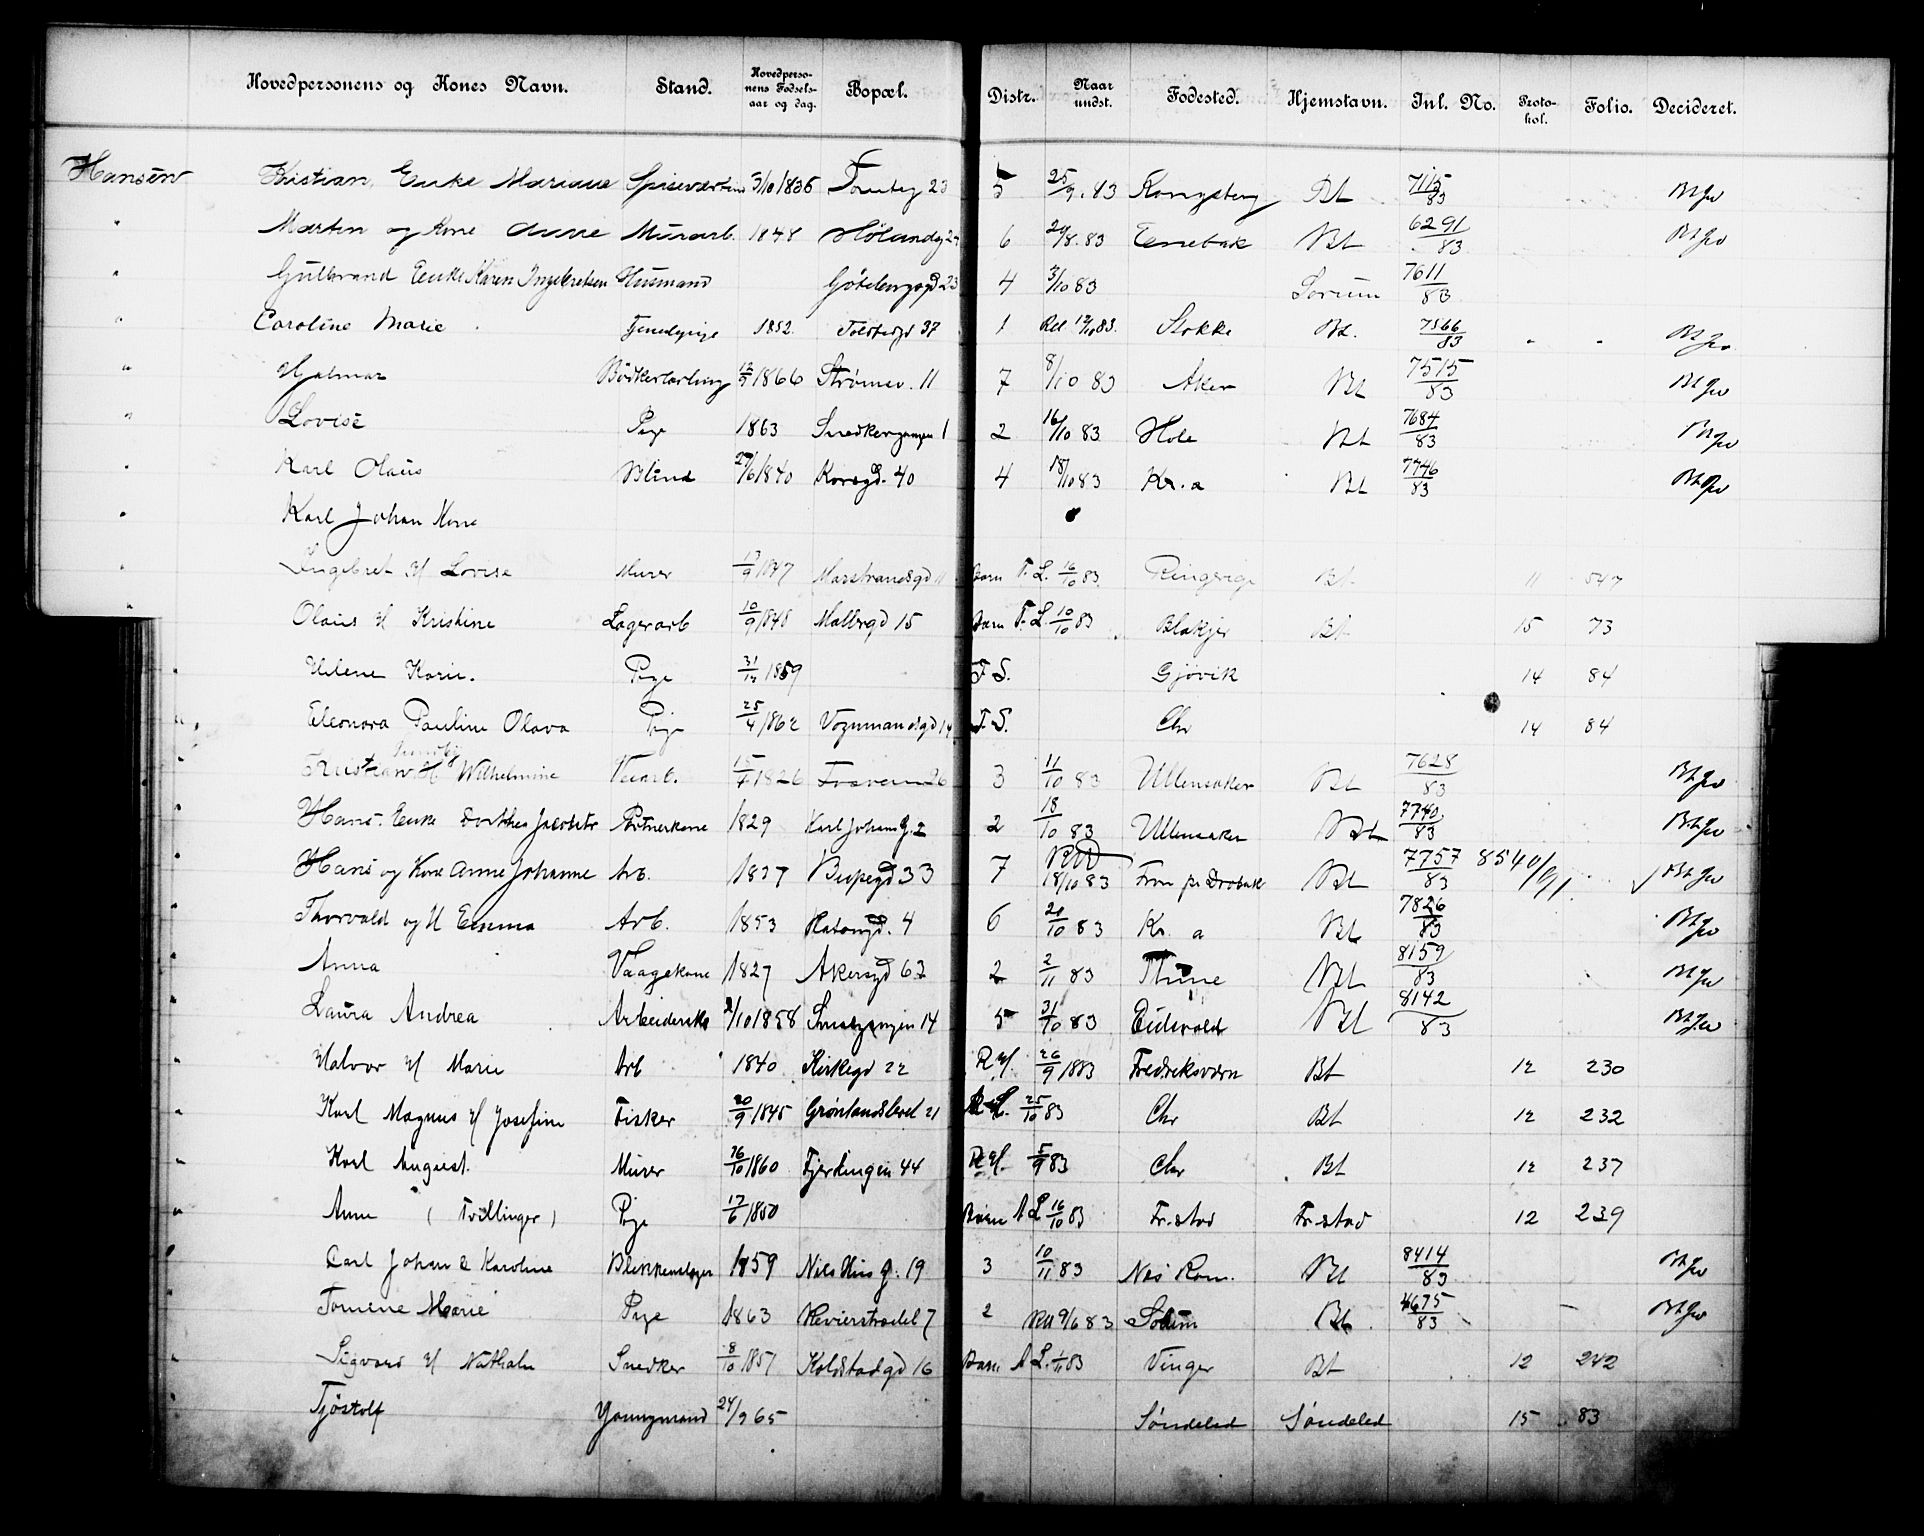 Hovedpersonens og Kones Navn. Stand. Hovedperso- nens Fødsels- aar og dag. Bopæl. Distr. Naar undst. Fødested. Hjemstavn. Inl. No. Proto- kol. Folio. Decideret.
Hansen Kristian, Enke Mariane Spiseværtin 3/10 1836 Tomteg 23 5 25/9.83 Kongsberg Bt 7115/83 Bt Jw
" Martin og Kone Anne Murarb. 1848 Hølandsg 24 6 29/8.83 Enebak Bt 6291/83 Bt Jw
" Gulbrand Enke Karen Ingebretsen Husmand Gøteborggd 23 4 3/10 83 Sørum 7611/83
" Caroline Marie Tjenestepige 1852 Toldbodgd 37 1 Rel 12/10 83. Stokke Bt. 7566/83 " " Bt Jw
" Hjalmar Bødkerlærling 12/9 1866 Strømsv. 11 7 8/10 83 Aker Bt 7515/83 Bt Jw
" Lovise Pige 1863 Snedkergangen 1 2 16/10 83 Hole Bt 7684/83 Bt Jw
" Karl Olaus Blind 27/6 1840 Korsgd. 40 4 18/10 83 Kr.a Bt 7746/83 Bt Jw
" Karl Johan Kone
" Ingebret H Lovise Murer 13/9 1847 Marstrandsgd 11 Barn F.L. 16/10 83 Ringerige Bt 11 547
" Olaus H Kristine Lagerarb 10/9 1848 Møllergd 15 Barn F.L. 10/10 83 Blakjer Bt 15 73
" Helene Karie. Pige 31/12 1859 F S. Gjøvik 14 84
" Eleonora Pauline Olava Pige 25/4 1862 Vognmandsgd 14 F.S. Chr 14 84
" Kristian H Wilhelmine Veiarb. 15/7 1826 Fossvein 26 3 11/10 83 Ullensaker Bt 7628/83 Bt Jw
" Hans. Enke Dorthea Jacobsdtr Portnerkone 1829 Karl Johans g. 2 2 18/10 83 Ullensaker Bt 7740/83 Bt Jw
" Hans og Kone Anne Johanne Arb. 1837 Bispegd 33 7 18/10 83 Fron pr Drøbak Bt 7757/83 8540/91 Bt Jw
" Thorvald og H Emma Arb. 1853 6 21/10 83 Kr. a Bt 7826/83 Bt Jw
" Anna Vaagekone 1827 Akersgd 63 2 2/11 83 Bt 8159/83 Bt Jw
" Laura Andrea Arbeiderske 2/10 1858 Smedgangen 14 5 31/10 83 Eidsvold Bt 8142/83 Bt Jw
" Halvor H Marie Arb 1840 Kirkegd 22 R H. 26/9 1883 Fredriksværn Bt 12 230
" Karl Magnus H Josefine Fisker 20/9 1845 Grønlandsleret 21 25/10 83 Chr Bt 12 232
" Karl August. Murer 26/10 1860 Fjerdingen 44 R H. 5/9 83 Chr Bt 12 237
" Anne ( Tvillinger ) Pige 17/6 1850 Barn A L 16/10 83 Fr.stad Fr.stad 12 239
" Carl Johan & Karoline Blikkenslager 1859 Nils Hus g. 19 3 10/11 83 Nes Rom. Bt 8414/83 Bt Jw
" Tomine Marie Pige 1863 Revierstrædet 7 2 9/6 83 Bt 4675/83 Bt Jw
" Sigvard H Nathalie Snedker 8/10 1857 Koldstadgd 16 Barn A L. 1/11 83 Vinger Bt 12 242
" Tjøstolf Youngmand 24/9 65 Søndeled Søndeled 15 83